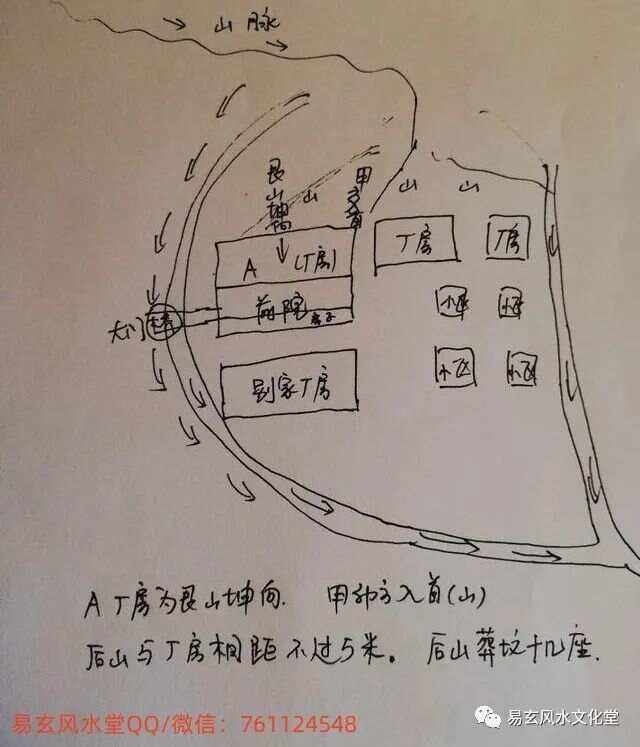 山脉
艮山坤向
山
甲方入首
山 山
A (厂房)
厂房
厂房
前院
大门
别家厂房
小区
小区
A厂房为艮山坤向. 甲卯方入首(山)
后山与厂房相距不过5米。后山葬坟十几座.
易玄风水堂QQ/微信:761124548
易玄风水文化堂